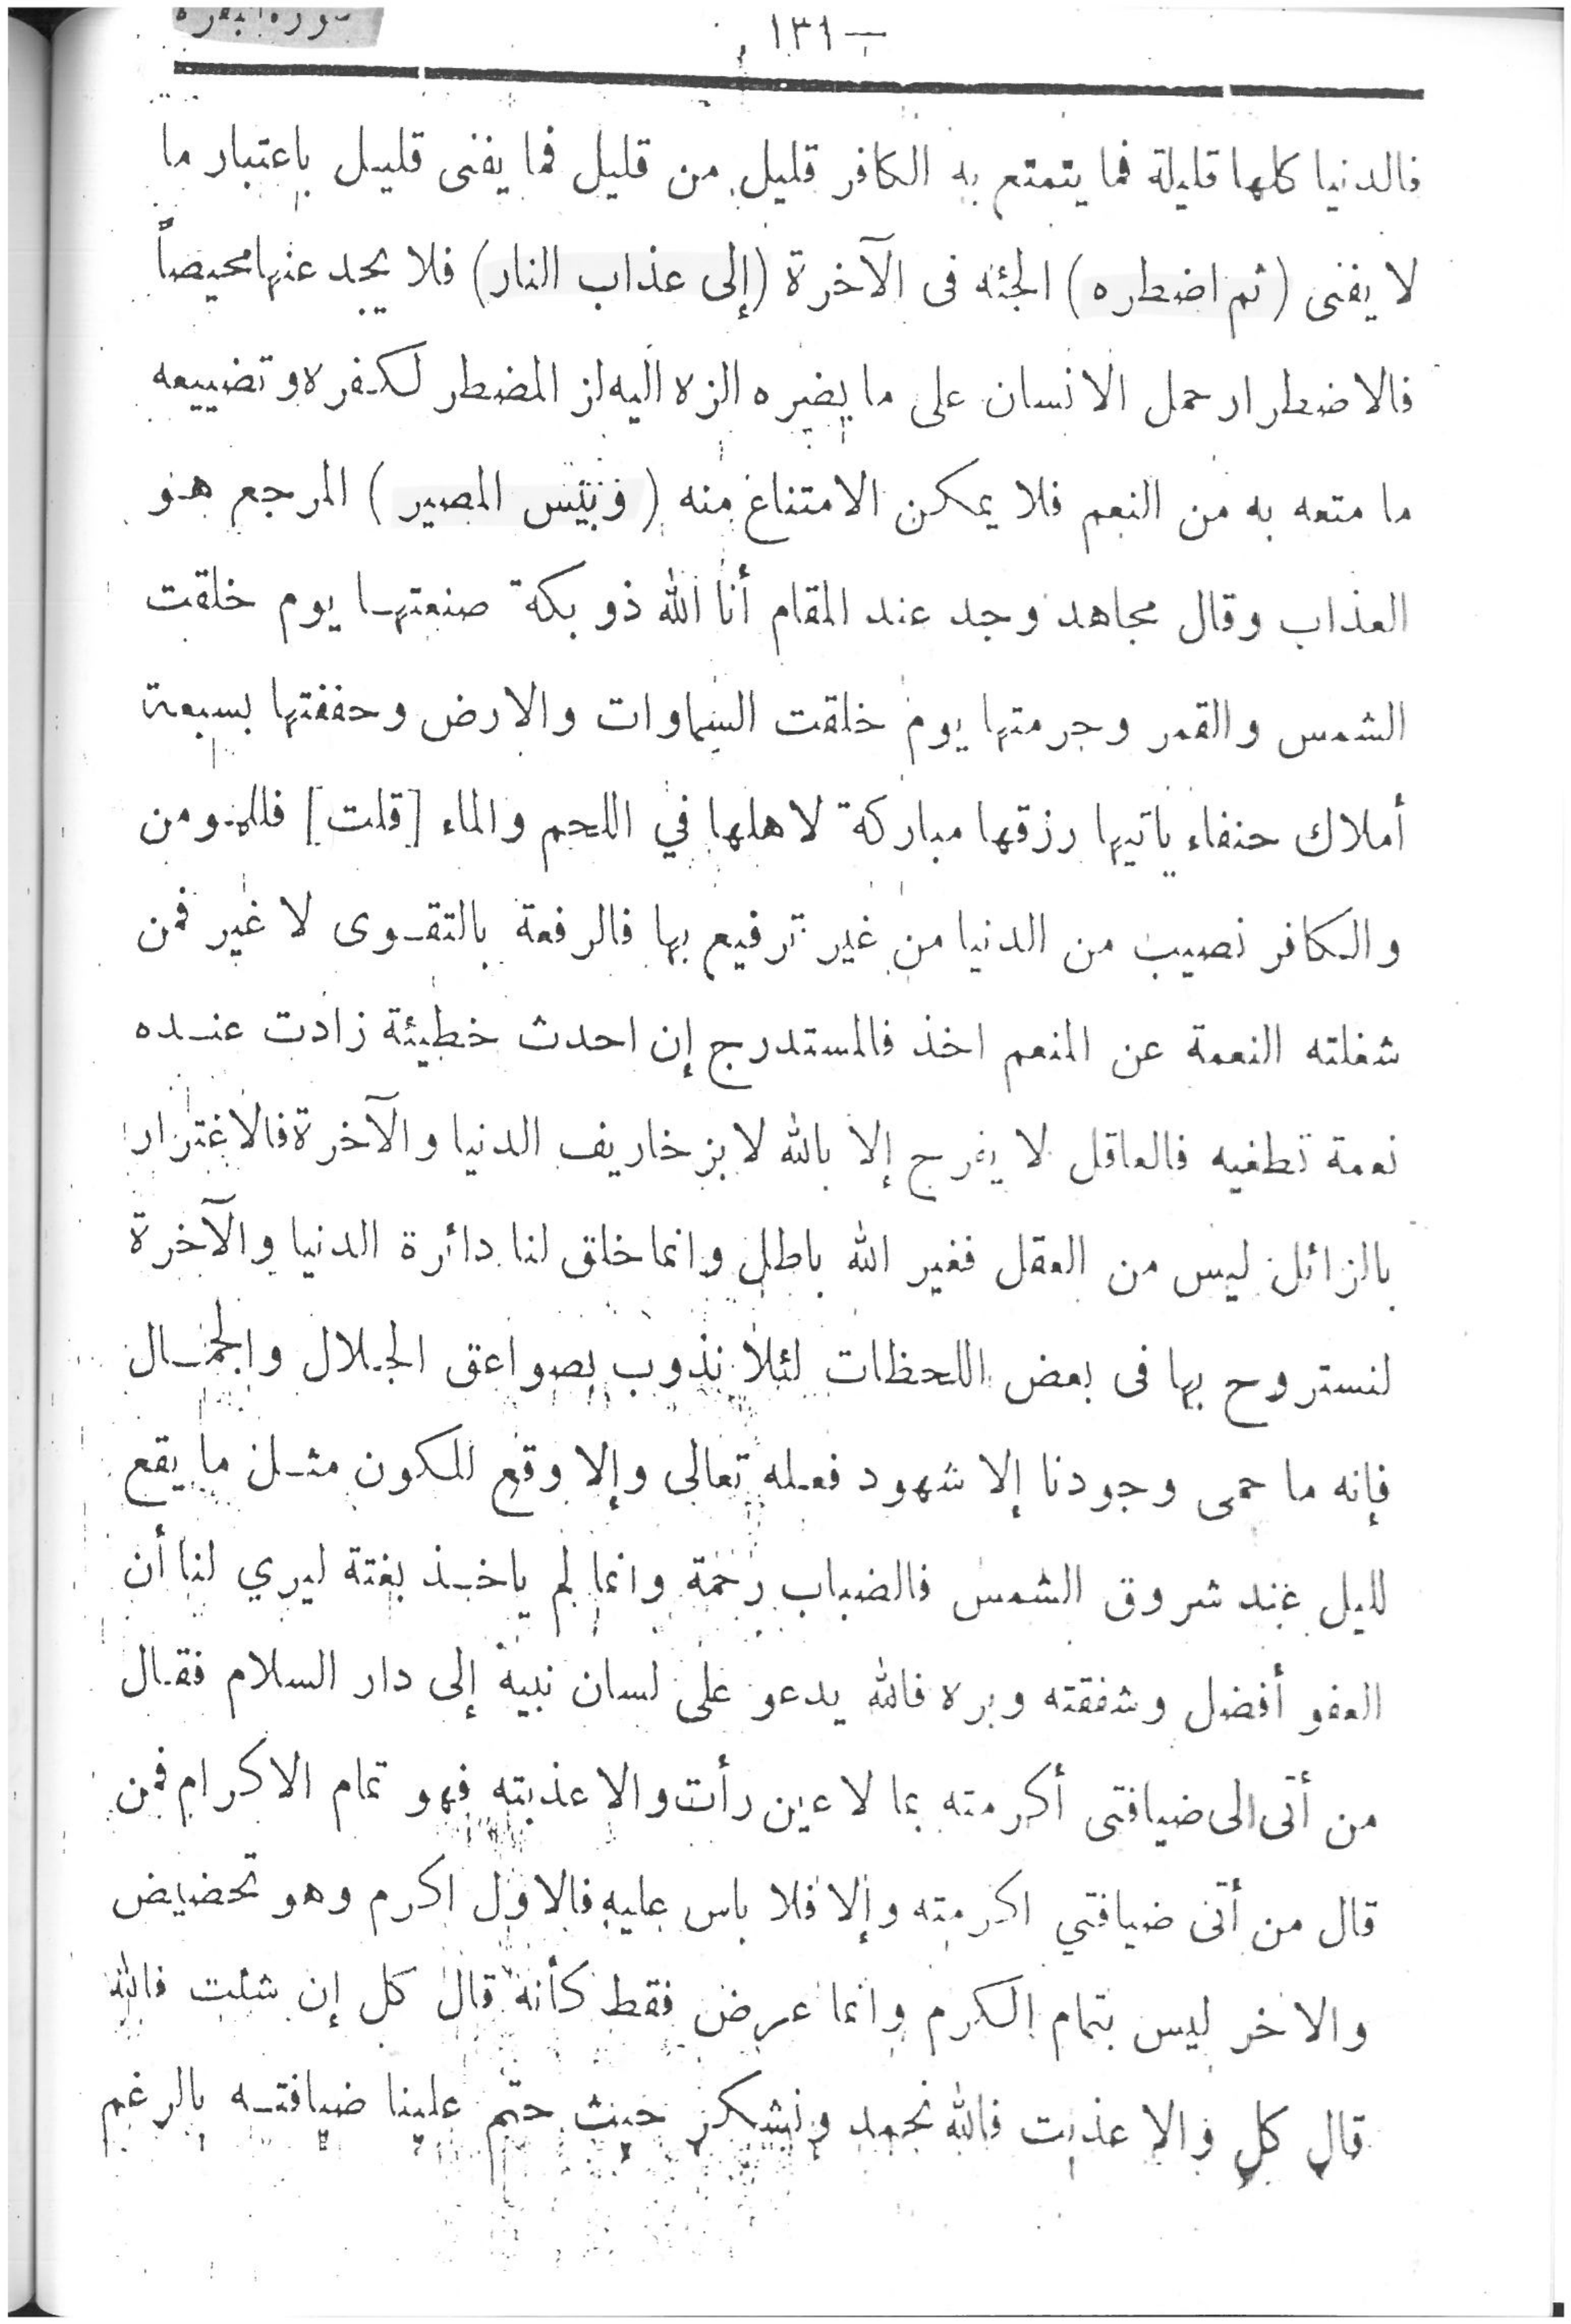 سورة البقرة
— ١٣١
فالدنيا كلها قليلة فما يتمتع به الكافر قليل من قليل فما يفنى قليل باعتبار ما
لا يفنى (ثم اضطره) الجئه فى الآخرة (إلى عذاب النار) فلا يجد عنها محيصاً
فالاضطرار حمل الانسان على ما يضره الزه اليه لز المضطر لكفره وتضييعه
ما متعه به من النعم فلا يمكن الامتناع منه (وبئس المصير) المرجع هو
العذاب وقال مجاهد وجد عند المقام أنا الله ذو بكة صنعتها يوم خلقت
الشمس والقمر وحرمتها يوم خلقت السماوات والارض وحففتها بسبعة
أملاك حنفاء ياتيها رزقها مباركة لاهلها في اللحم والماء [قلت] فللمومن
والكافر نصيب من الدنيا من غير ترفيع بها فالرفعة بالتقوى لا غير فمن
شغلته النعمة عن المنعم اخذ فالمستدرج إن احدث خطيئة زادت عنده
نعمة تطغيه فالعاقل لا يفرح إلا بالله لا بزخاريف الدنيا والآخرة فالاغترار
بالزائل ليس من العقل فغير الله باطل وانما خلق لنا دائرة الدنيا والآخرة
لنستروح بها فى بعض اللحظات لئلا نذوب بصواعق الجلال والجمال
فإنه ما حمى وجودنا إلا شهود فعله تعالى وإلا وقع للكون مثل ما يقع
لليل عند شروق الشمس فالضباب رحمة وانما لم ياخذ بغتة ليري لنا أن
العفو أفضل وشفقته وبره فالله يدعو على لسان نبيه إلى دار السلام فقال
من أتى الى ضيافتى أكرمته بما لا عين رأت والا عذبته فهو تمام الاكرام فمن
قال من أتى ضيافتي اكرمته وإلا فلا باس عليه فالاول اكرم وهو تحضيض
والاخر ليس بتمام الكرم وانما عرض فقط كأنه قال كل إن شئت فالله
قال كل والا عذبت فالله نحمد ونشكر حيث حتم علينا ضيافته بالرغم